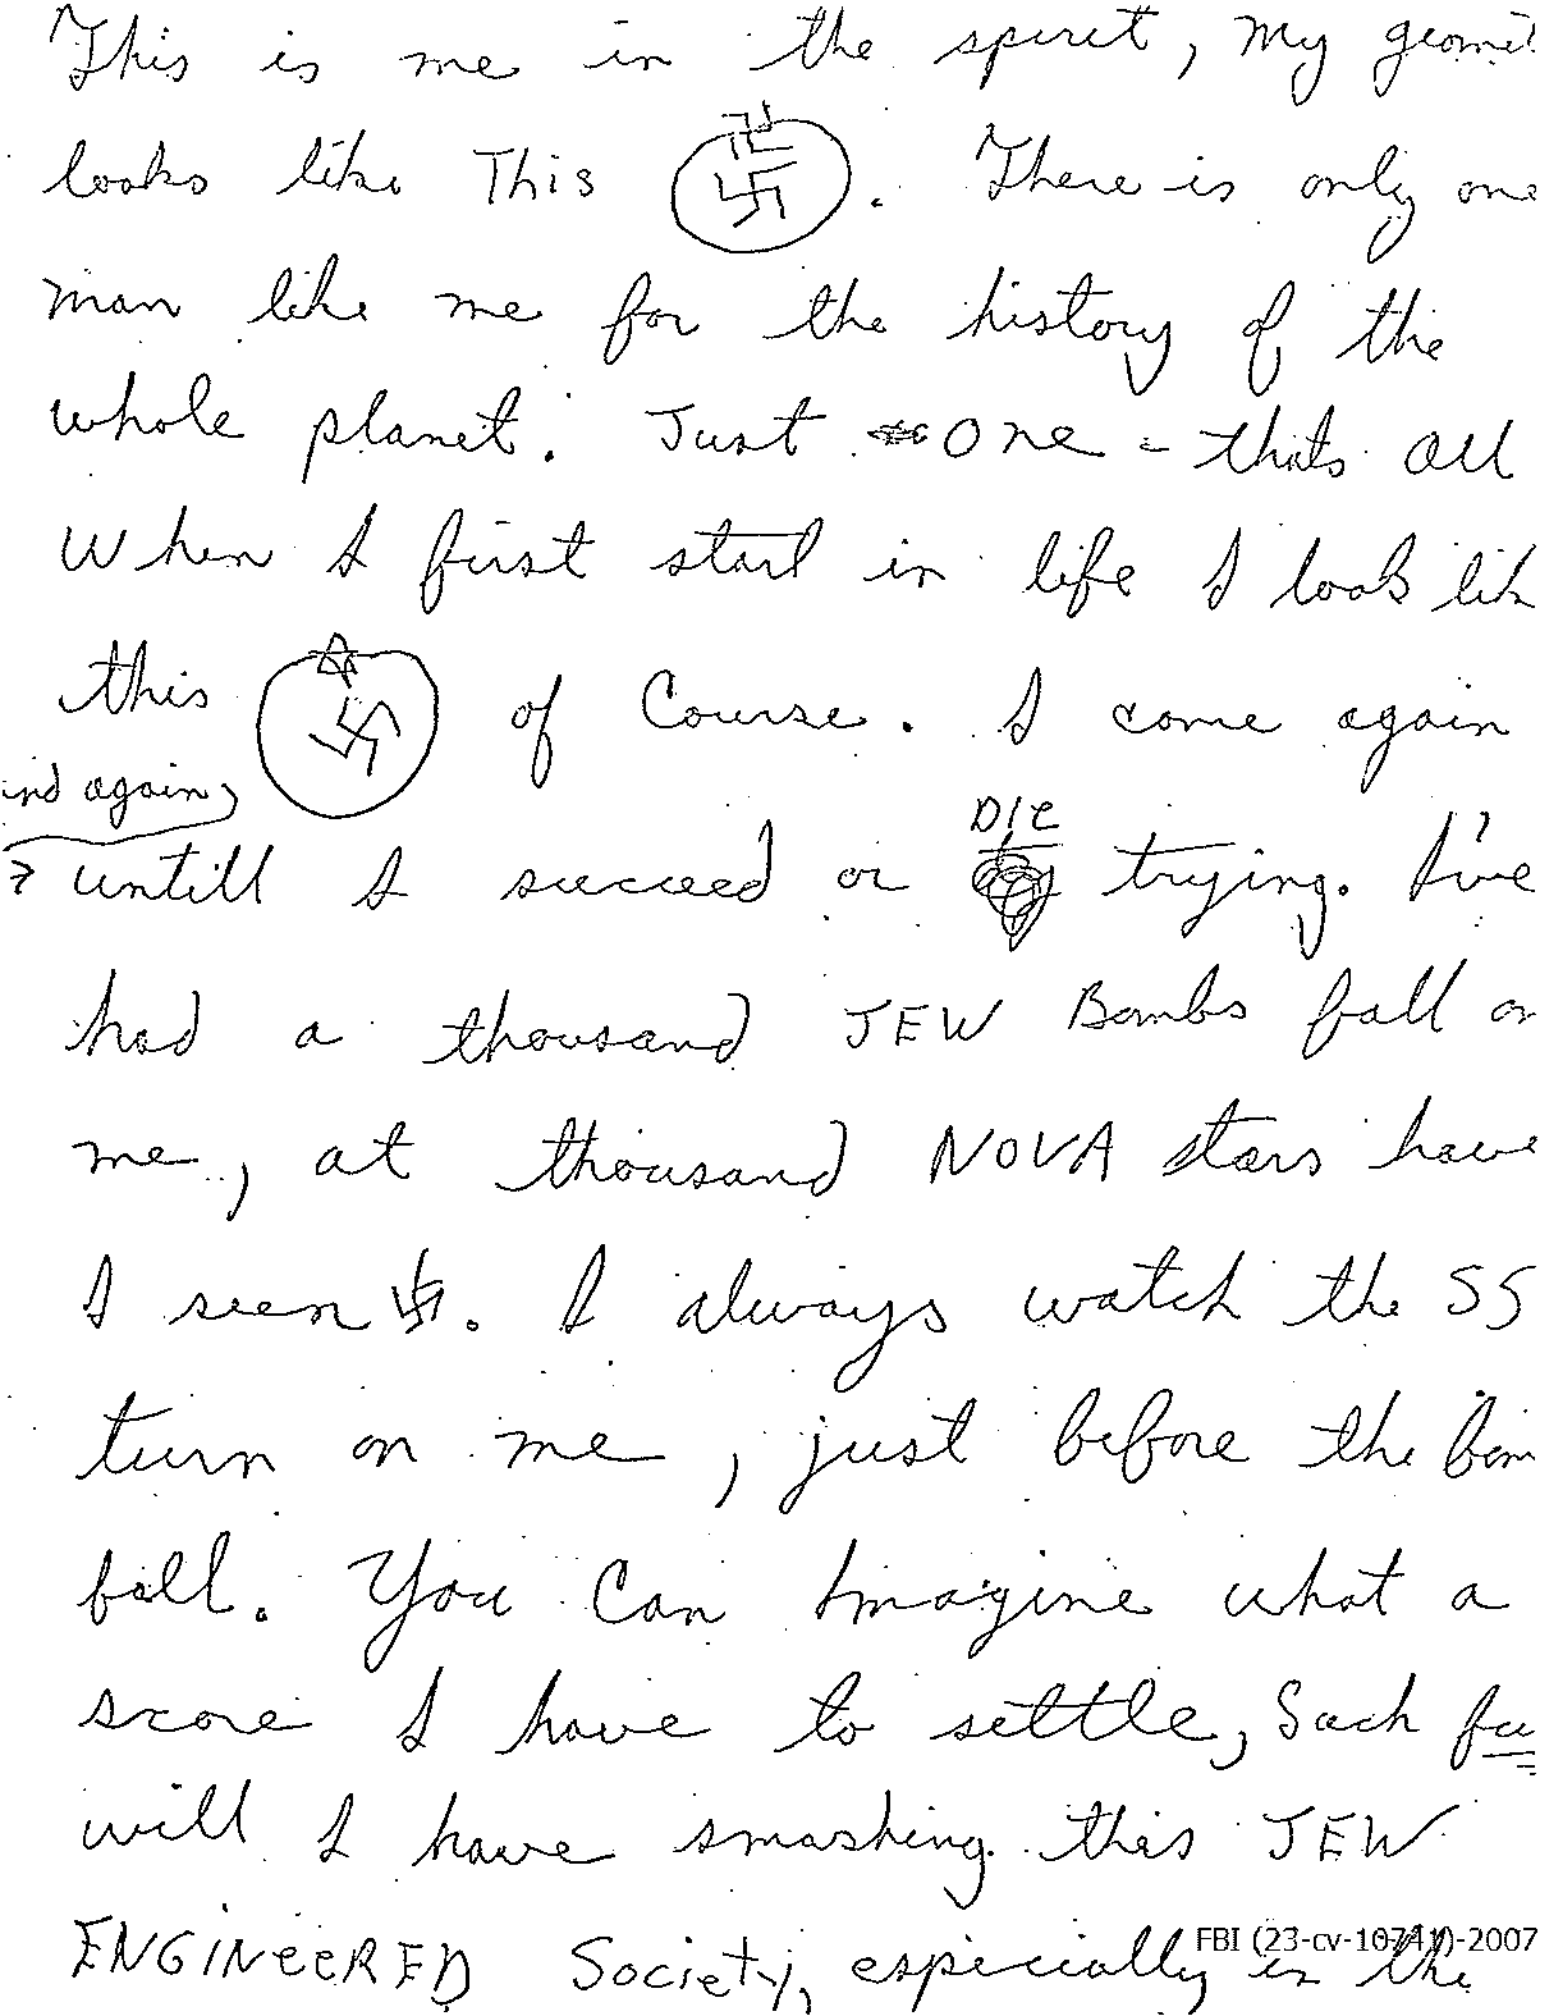 This is me in the spirit, my geomet
looks like This . There is only one
man like me for the history of the
whole planet. Just one - thats all
When I first start in life I look lik
this of Course. I come again
and again,
untill I succeed or DIE trying. I've
had a thousand JEW Bombs fall on
me, at thousand NOVA stars have
I seen . I always watch the SS
turn on me, just before the bom
fall. You Can Imagine what a
score I have to settle, Such fu
will I have smashing this JEW
ENGINEERED Society, especially in the
FBI (23-cv-10741)-2007